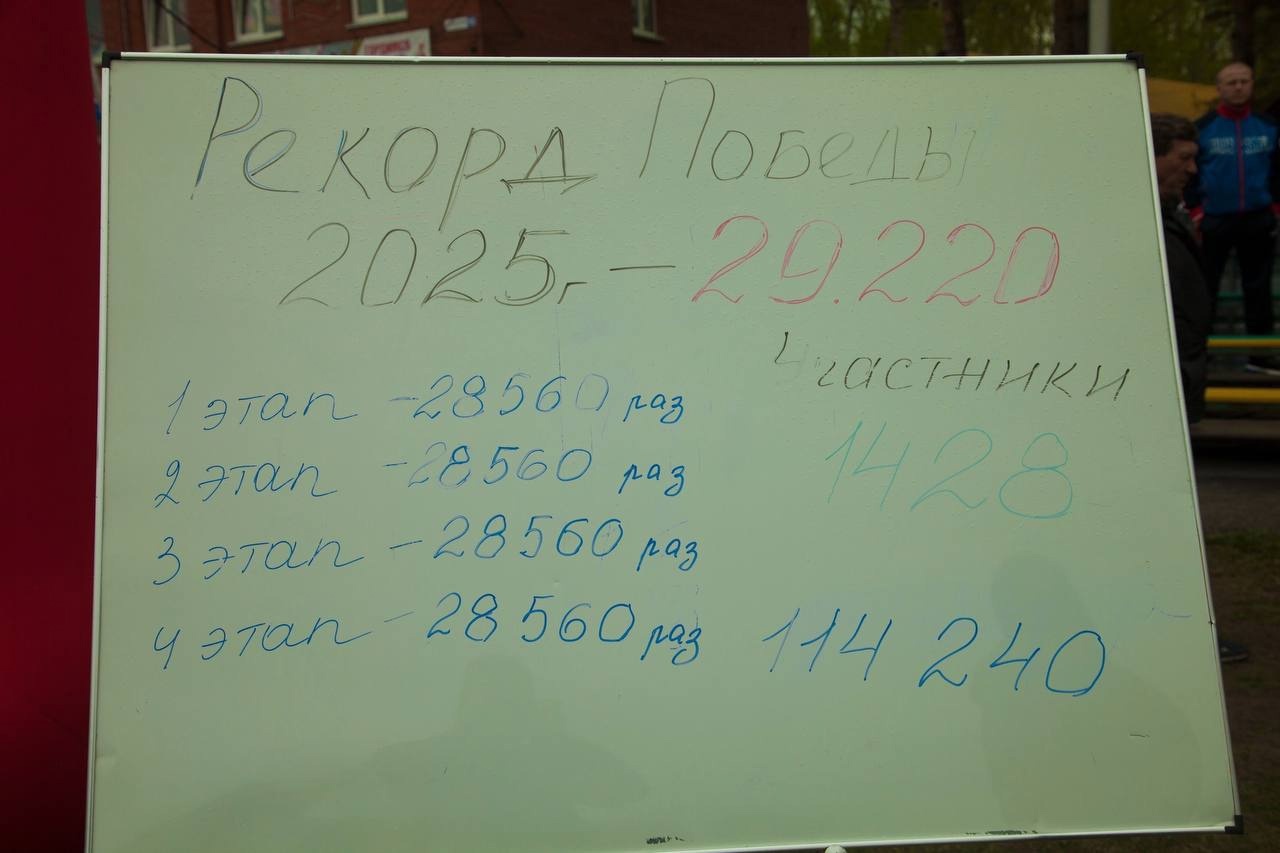 Рекорд Победы
2025г. — 29.220
Участники
1428
1 этап - 28560 раз
2 этап - 28560 раз
3 этап - 28560 раз
4 этап - 28560 раз
114 240